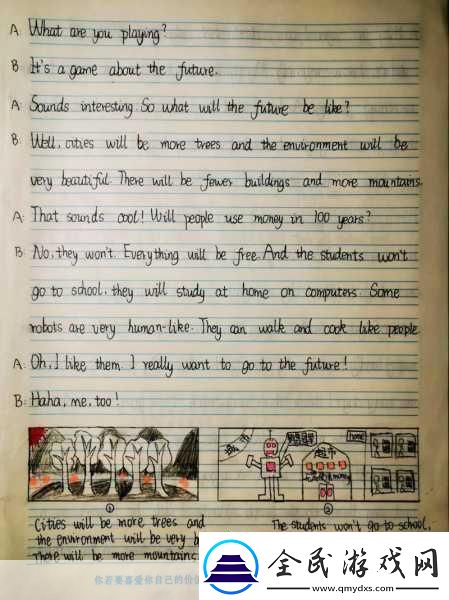 A: What are you playing?
B: It's a game about the future.
A: Sounds interesting. So what will the future be like?
B: Well, cities will be more trees and the environment will be
very beautiful. There will be fewer buildings and more mountains.
A: That sounds cool! Will people use money in 100 years?
B: No, they won't. Everything will be free. And the students won't
go to school, they will study at home on computers. Some
robots are very human-like. They can walk and cook like people.
A: Oh, I like them. I really want to go to the future!
B: Haha, me, too!
城市
超市
home
①
②
Cities will be more trees and
the environment will be very b
There will be more mountains
The students won't go to school,
你若要喜爱你自己的价值
全民游戏网
www.qmydxs.com